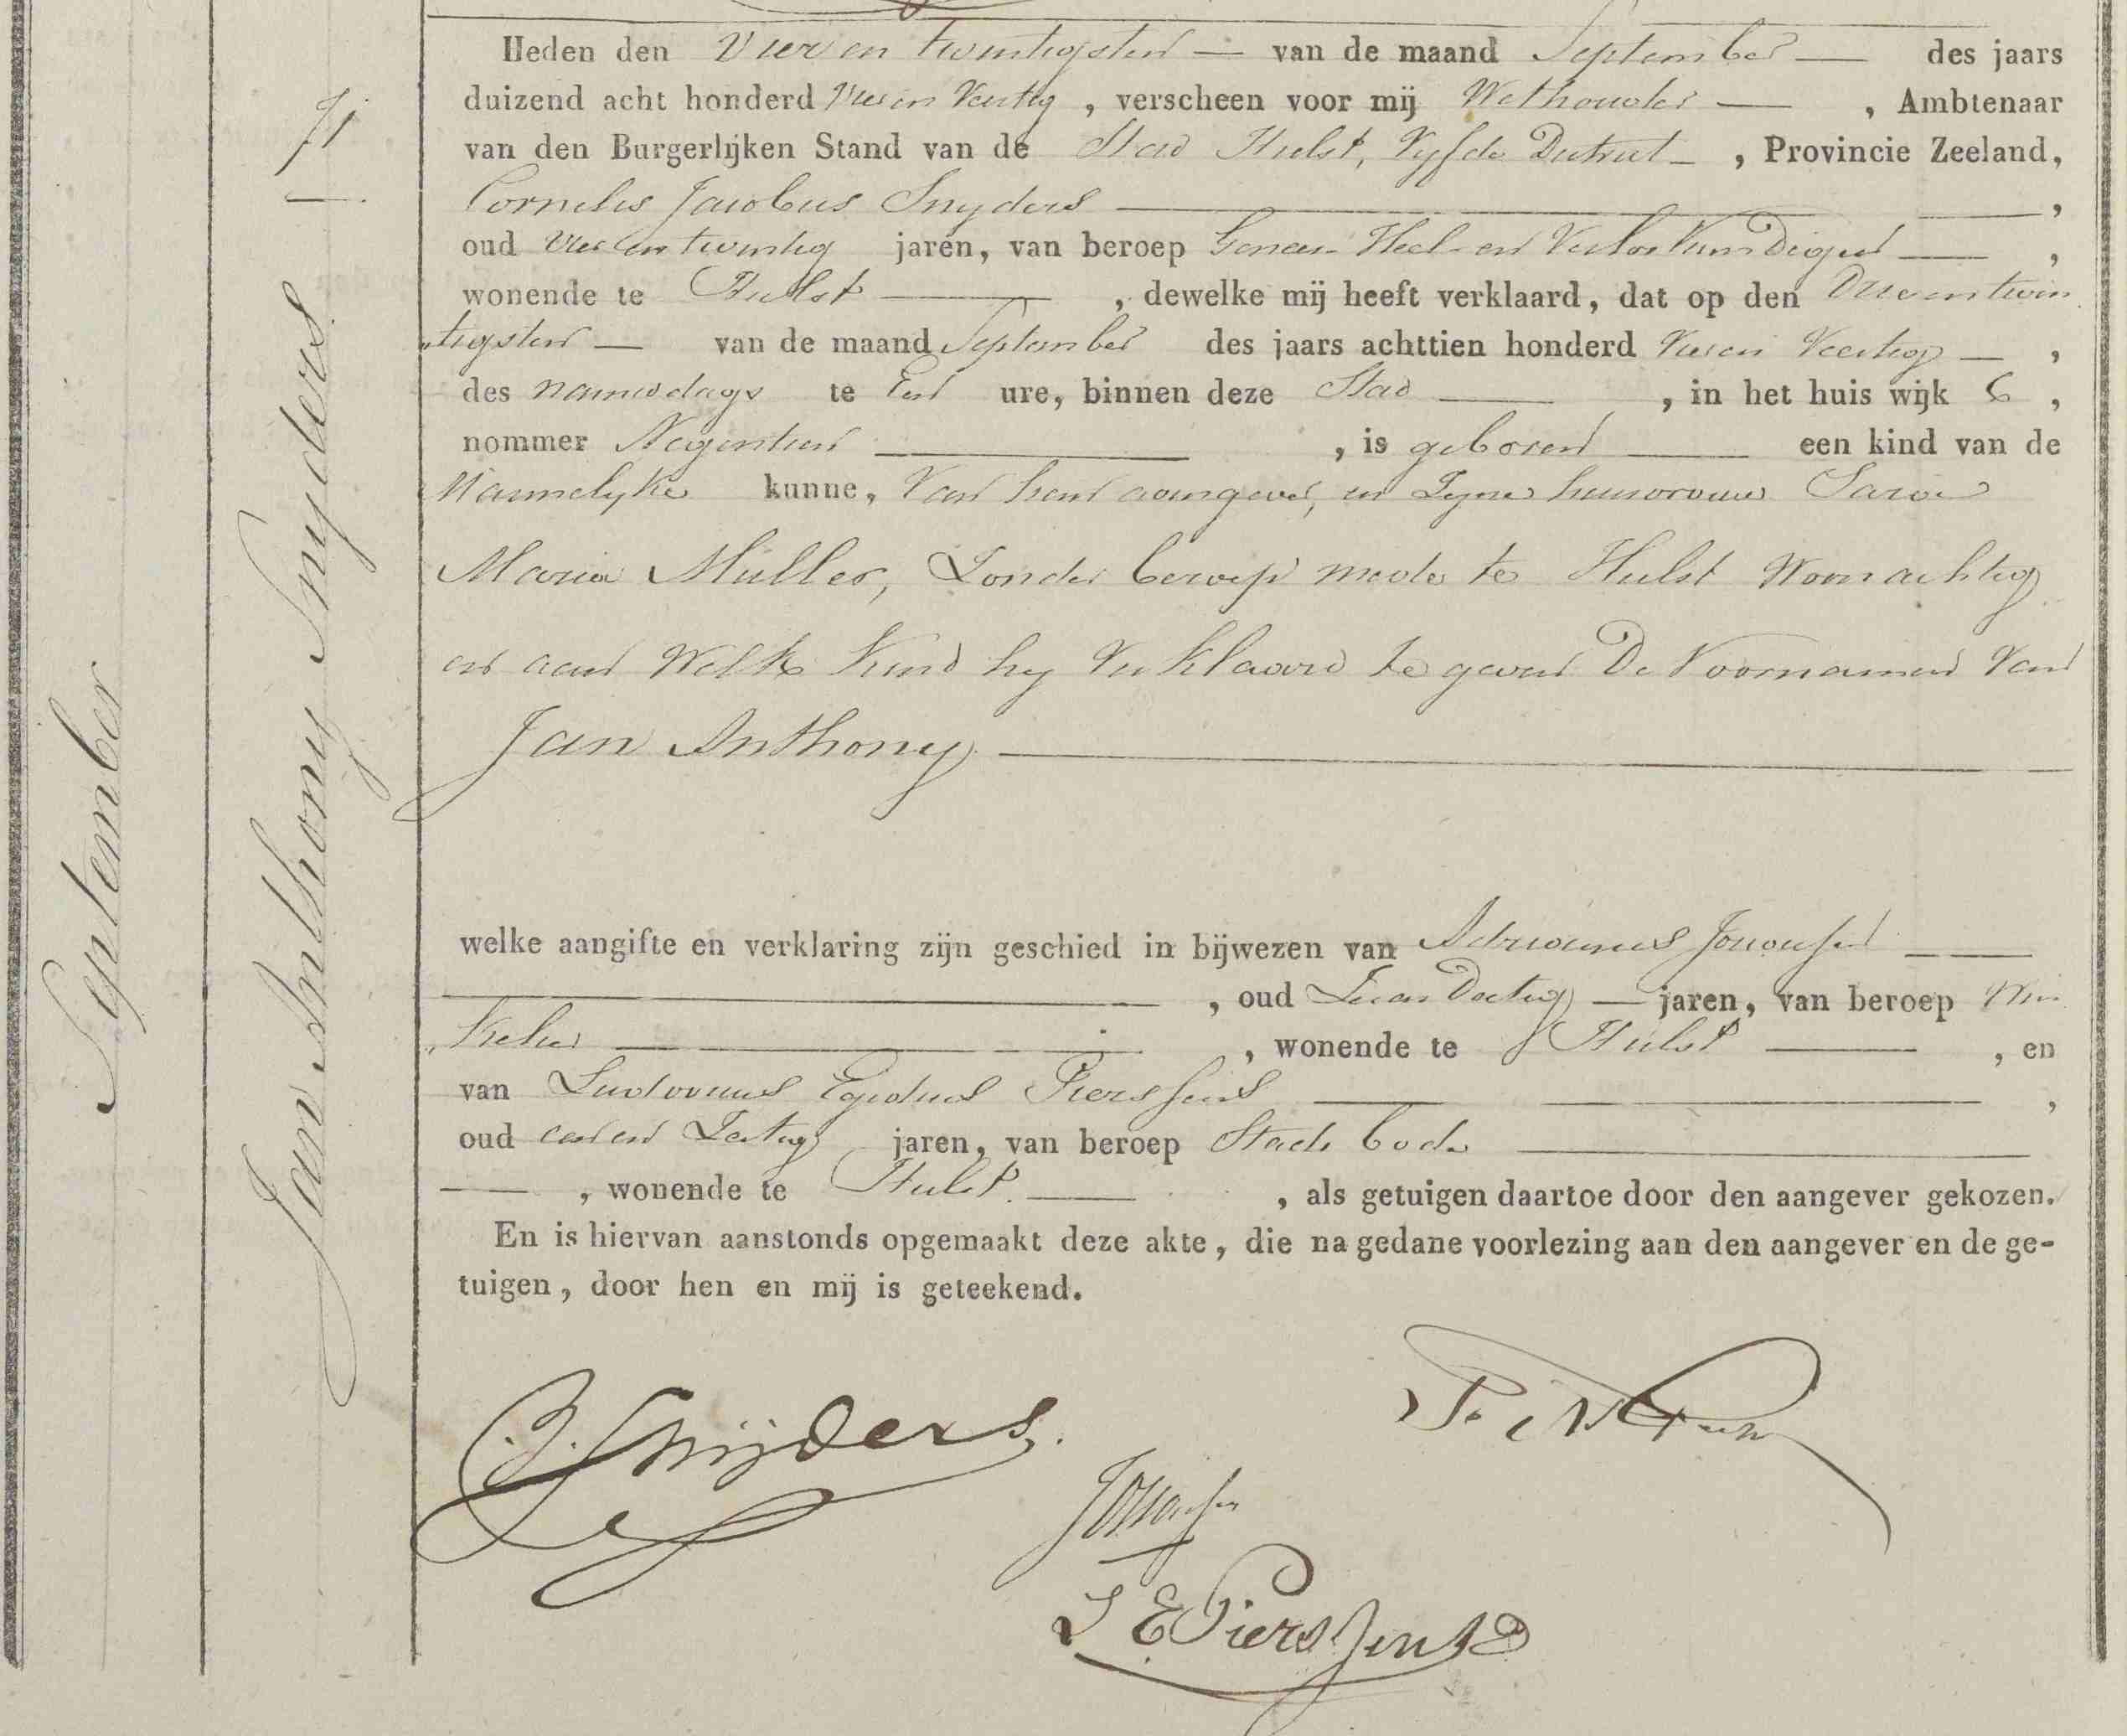 September
Jan Anthony Snyders
71
Heden den Vier en twintigsten — van de maand September — des jaars
duizend acht honderd Vier en Veertig, verscheen voor mij Wethouder —, Ambtenaar
van den Burgerlijken Stand van de Stad Hulst, Vyfde District —, Provincie Zeeland,
Cornelis Jacobus Snyders —,
oud Vier en twintig jaren, van beroep Genees- Heel- en Verloskundigen —,
wonende te Hulst —, dewelke mij heeft verklaard, dat op den Drie en twin
„tigsten — van de maand September des jaars achttien honderd Vier en Veertig —,
des namiddags te Een ure, binnen deze Stad —, in het huis wijk C,
nommer Negentien —, is geboren — een kind van de
Mannelyke kunne, Van hem aangever, en Zyne huisvrouw Sara
Maria Müller, Zonder beroep mede te Hulst Woonachtig
en aan Welk Kind hy Verklaard te geven De Voornamen Van
Jan Anthony —
welke aangifte en verklaring zijn geschied in bijwezen van Adrianus —
—, oud Dertig — jaren, van beroep Win
„kelier —, wonende te Hulst —, en
van Ludovicus Egidius Pierssens —,
oud een en jaren, van beroep Stads bode —
—, wonende te Hulst. —, als getuigen daartoe door den aangever gekozen.
En is hiervan aanstonds opgemaakt deze akte, die na gedane voorlezing aan den aangever en de ge-
tuigen, door hen en mij is geteekend.
C.J. Snijders.
L E Pierssens